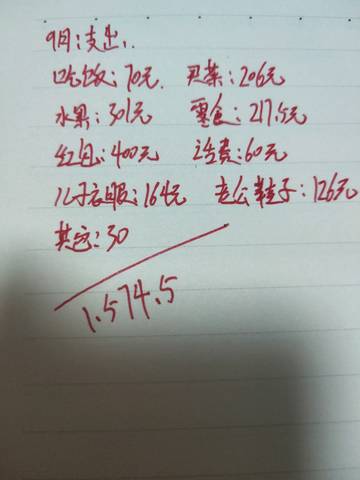 9月:支出:
吃饭:70元 买菜:206元
水果:301元 零食:217.5元
红包:400元 话费:60元
儿子衣服:164元 老公鞋子:126元
其它:30
1.574.5